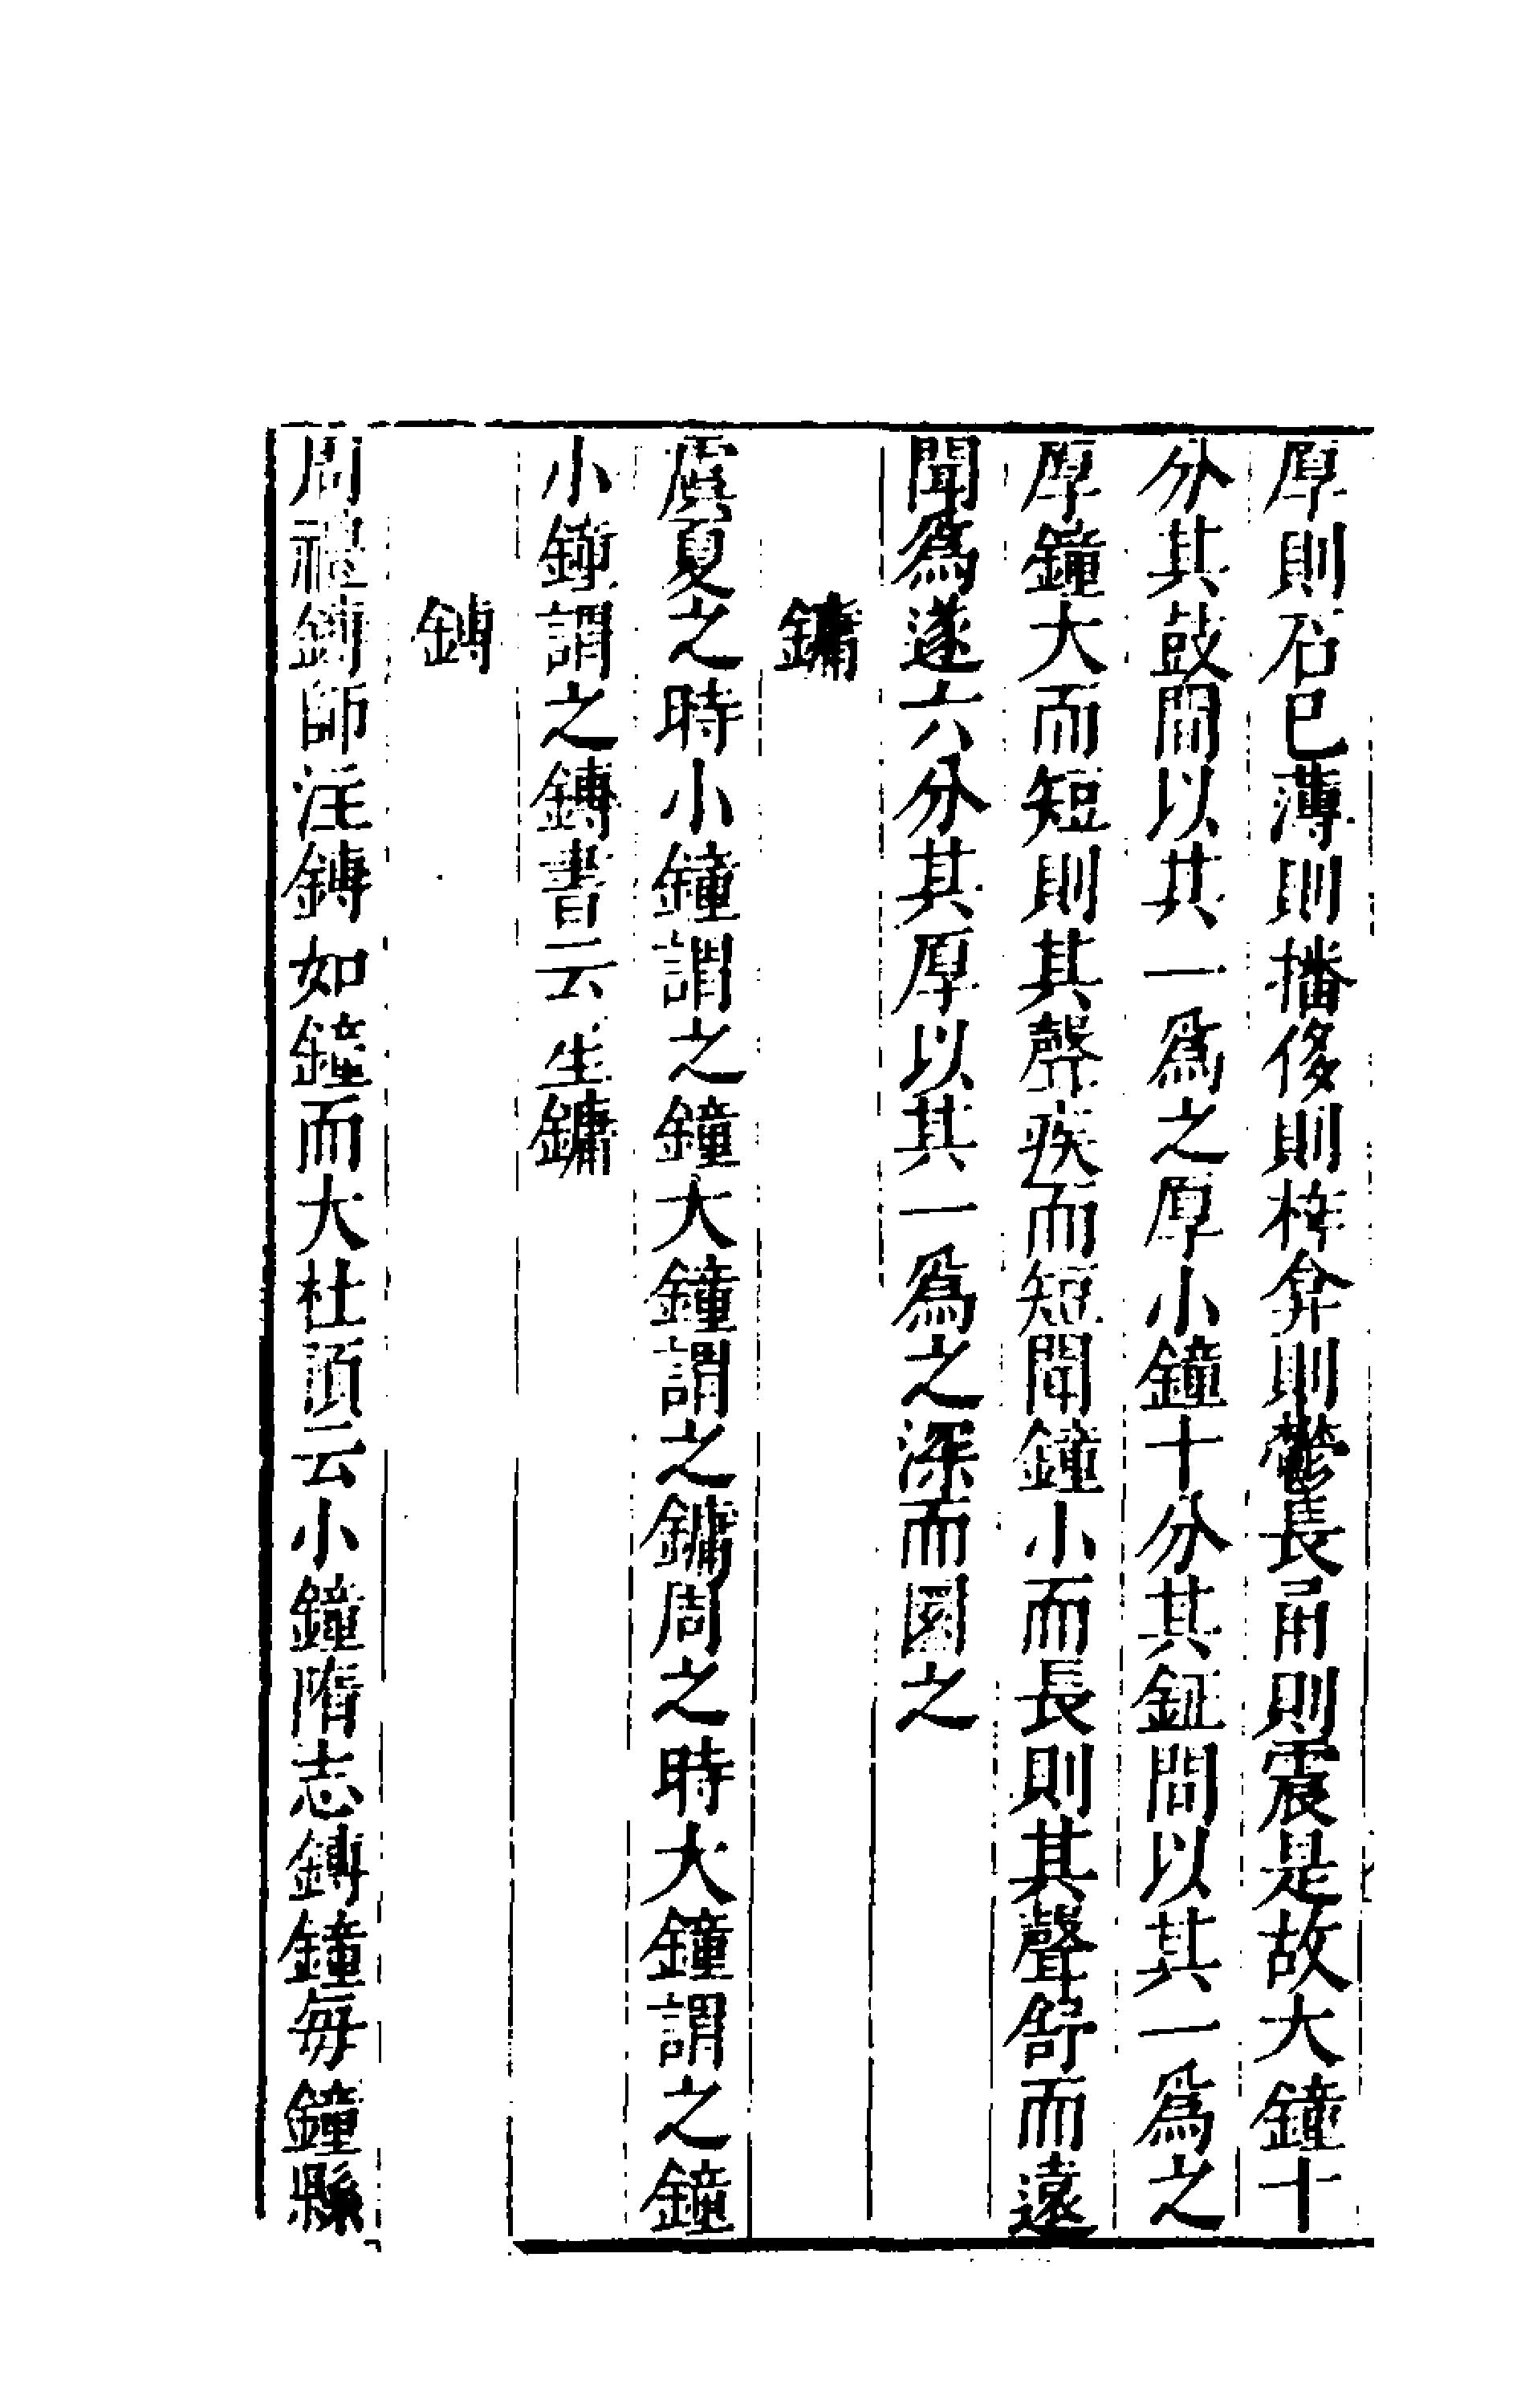 厚則石已薄則播侈則柞弇則鬱長甬則震是故大鐘十
分其鼓間以其一為之厚小鐘十分其鉦間以其一為之
厚鐘大而短則其聲疾而短聞鐘小而長則其聲舒而遠
聞為遂六分其厚以其一為之深而圜之
鏞
虞夏之時小鐘謂之鐘大鐘謂之鏞周之時大鐘謂之鐘
小鐘謂之鎛書云笙鏞
鎛
周禮鎛師注鎛如鐘而大杜預云小鐘隋志鎛鐘每鐘縣